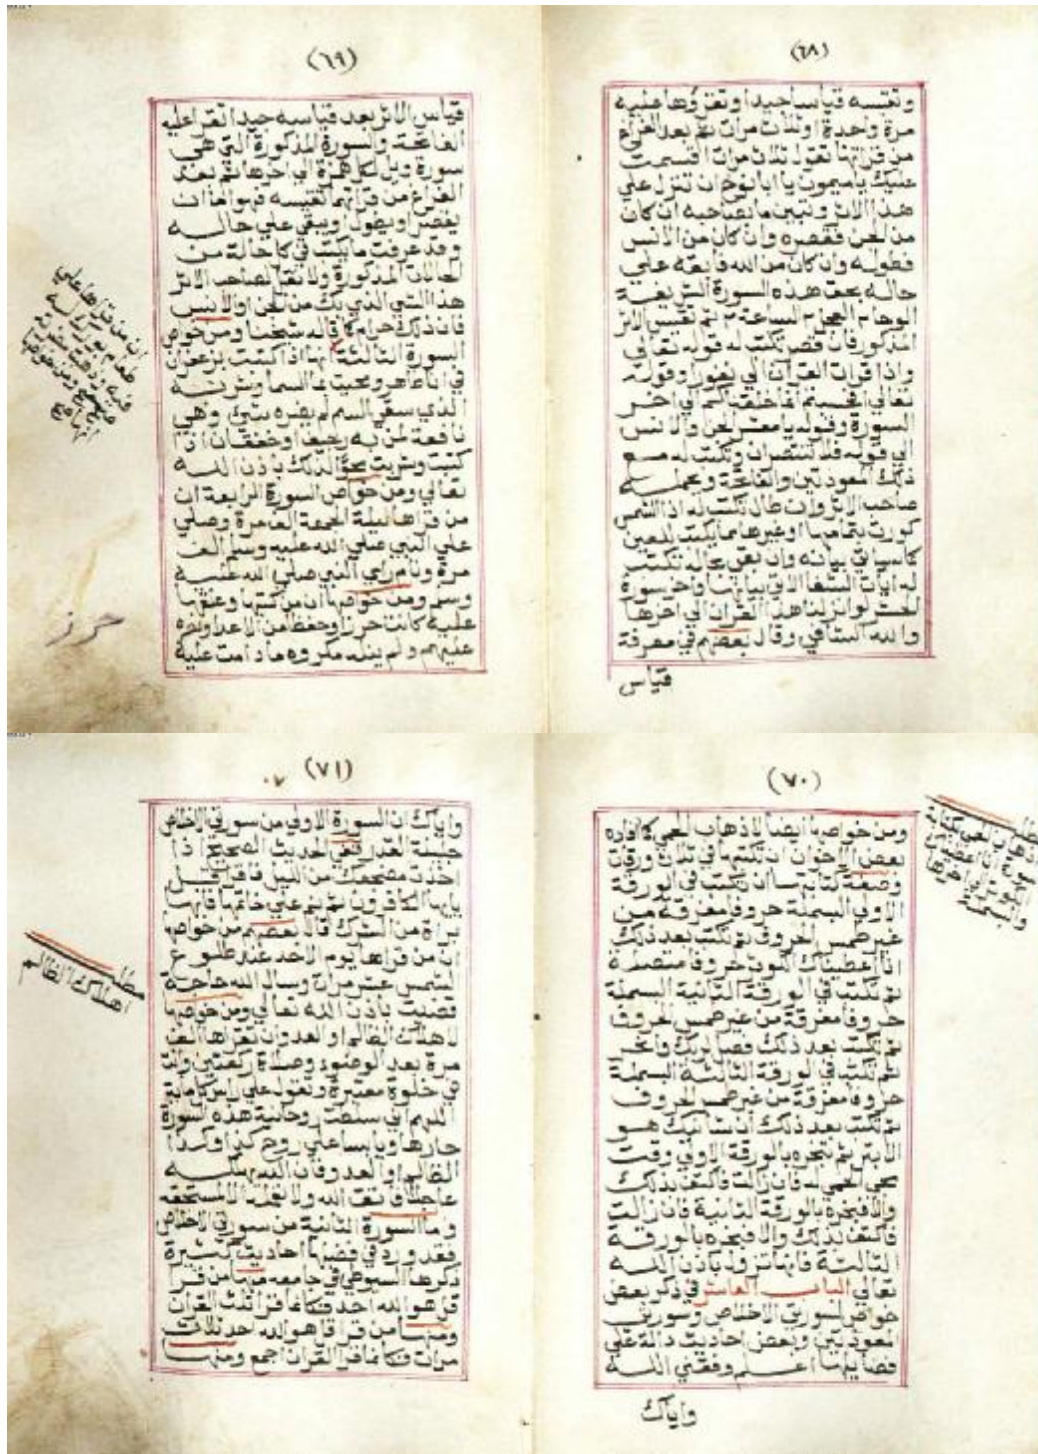 (٦٨)
وتقيسه قياسا جيدا وتقرؤها عليه
مرة واحدة او ثلاث مرات ثم بعد الفراغ
من قراتها تقول ثلاث مرات اقسمت
عليك يا ميمون يا ابا نوخ ان تنزل علي
هذا الاثر وتبين ما بصاحبه ان كان
من الجن فقصره وان كان من الانس
فطوله وان كان من الله فابقه علي
حاله بحق هذه السورة الشريفة
الوحا ٢ العجل ٢ الساعة ٢ ثم تقيس الاثر
المذكور فان قصر تكتب له قوله تعالي
واذا قرات القرآن الي نفورا وقوله
تعالي افحسبتم انما خلقناكم الي اخر
السورة وقوله يا معشر الجن والانس
الي قوله فلا تنتصران وتكتب له مع
ذلك المعوذتين والفاتحة ويحمله
صاحب الاثر وان طال تكتب له اذا الشمس
كورت بتمامها او غيرها مما يكتب للعين
كما سياتي بيانه وان بقي بحاله تكتب
له ايات الشفا الاتي بيانها واخر سورة
الحشر لو انزلنا هذا القران الي اخرها
والله الشافي وقال بعضهم في معرفة
قياس
(٦٩)
قياس الاثر بعد قياسه جيدا تقرا عليه
الفاتحة والسورة المذكورة التي هي
سورة ويل لكل همزة الي اخرها ثم بعد
الفراغ من قراتهما تقيسه فهو اما ان
يقصر او يطول او يبقي علي حاله
وقد عرفت ما يكتب في كل حالة من
الحالات المذكورة ولا تقل لصاحب الاثر
هذا الشي الذي بك من الجن او الانس
فان ذلك حرام كما قاله شيخنا ومن خواص
السورة الثالثة انها اذا كتبت بزعفران
في انا طاهر ومحيت بما السما وشربه
الذي سقي السم لم يضره شي وهي
نافعة لمن به رجيف او خفقان اذا
كتبت وشربت محو لذلك باذن الله
تعالي ومن خواص السورة الرابعة ان
من قراها ليلة الجمعة الف مرة وصلي
علي النبي صلي الله عليه وسلم الف
مرة ونام راي النبي صلي الله عليه
وسلم ومن خواصها ان من كتبها وعلقها
عليه كانت حرزا وحفظا من الاعدا ونصره
عليهم ولم ينله مكروه ما دامت عليه
ان من قراها علي
طعام
حرز
(٧٠)
ومن خواصها ايضا لاذهاب الحمي كما افاده
بعض الاخوان ان تكتبها في ثلاث ورقات
وصفة كتابتها ان تكتب في الورقة
الاولي البسملة حروفا مفرقة من
غير طمس الحروف ثم تكتب بعد ذلك
انا اعطيناك الكوثر حروفا متصلة
ثم تكتب في الورقة الثانية البسملة
حروفا مفرقة من غير طمس الحروف
ثم تكتب بعد ذلك فصل لربك وانحر
ثم تكتب في الورقة الثالثة البسملة
حروفا مفرقة من غير طمس الحروف
ثم تكتب بعد ذلك ان شانيك هو
الابتر ثم تبخره بالورقة الاولي وقت
مجي الحمي له فان زالت فاكتف بذلك
والا فبخره بالورقة الثانية فان زالت
فاكتف بذلك والا فبخره بالورقة
الثالثة فانها تزول باذن الله
تعالي الباب العاشر في ذكر بعض
خواص لسورتي الاخلاص وسورتي
المعوذتين وبعض احاديث دالة علي
فضايلها اعلم وفقني الله
واياك
مطلب
اذهاب الحمي كتابة
سورة انا اعطيناك
الكوثر الي اخرها
والبسملة
(٧١)
واياك ان السورة الاولي من سورتي الاخلاص
جليلة القدر ففي الحديث الصحيح اذا
اخذت مضجعك من الليل فاقرا قل
يايها الكافرون ثم نم علي خاتمتها فانها
براة من الشرك قال بعضهم من خواصها
ان من قراها يوم الاحد عند طلوع
الشمس عشر مرات وسال الله حاجة
قضيت باذن الله تعالي ومن خواصها
لاهلاك الظالم او العدو ان تقراها الف
مرة بعد الوضوء وصلاة ركعتين وانت
في خلوة معتبرة وتقول علي راس كل ماية
اللهم اني سلطت روحانية هذه السورة
حارها ويابسها علي روح كذا وكذا
الظالم او العدو فان الله يهلكه
عاجلا فاتق الله ولا تفعله الا لمستحقه
وما السورة الثانية من سورتي الاخلاص
فقد ورد في فضلها احاديث كثيرة
ذكرها السيوطي في جامعه منها من قرا
قل هو الله احد فكانما قرا ثلث القران
ومنها من قرا قل هو الله احد ثلاث
مرات فكانما قرا القران اجمع ومنها
مطلب
اهلاك الظالم